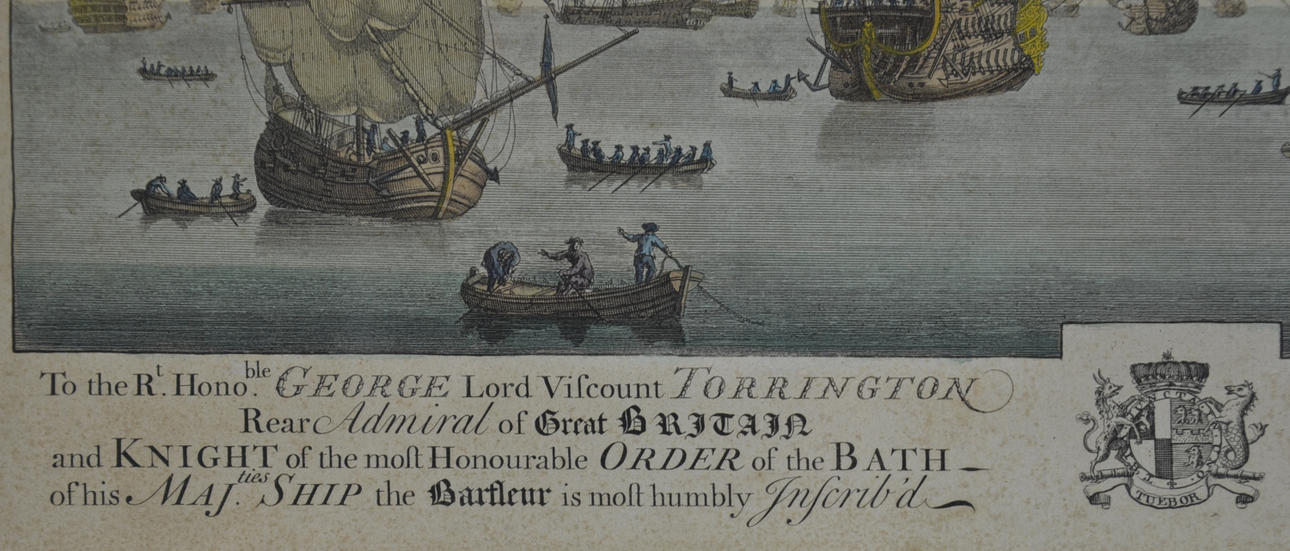 To the Rt. Honoble. GEORGE Lord Viſcount TORRINGTON
Rear Admiral of Great BRITAIN
and KNIGHT of the moſt Honourable ORDER of the BATH
of his MAJ.ties SHIP the Barfleur is moſt humbly Inſcrib'd
TUEBOR